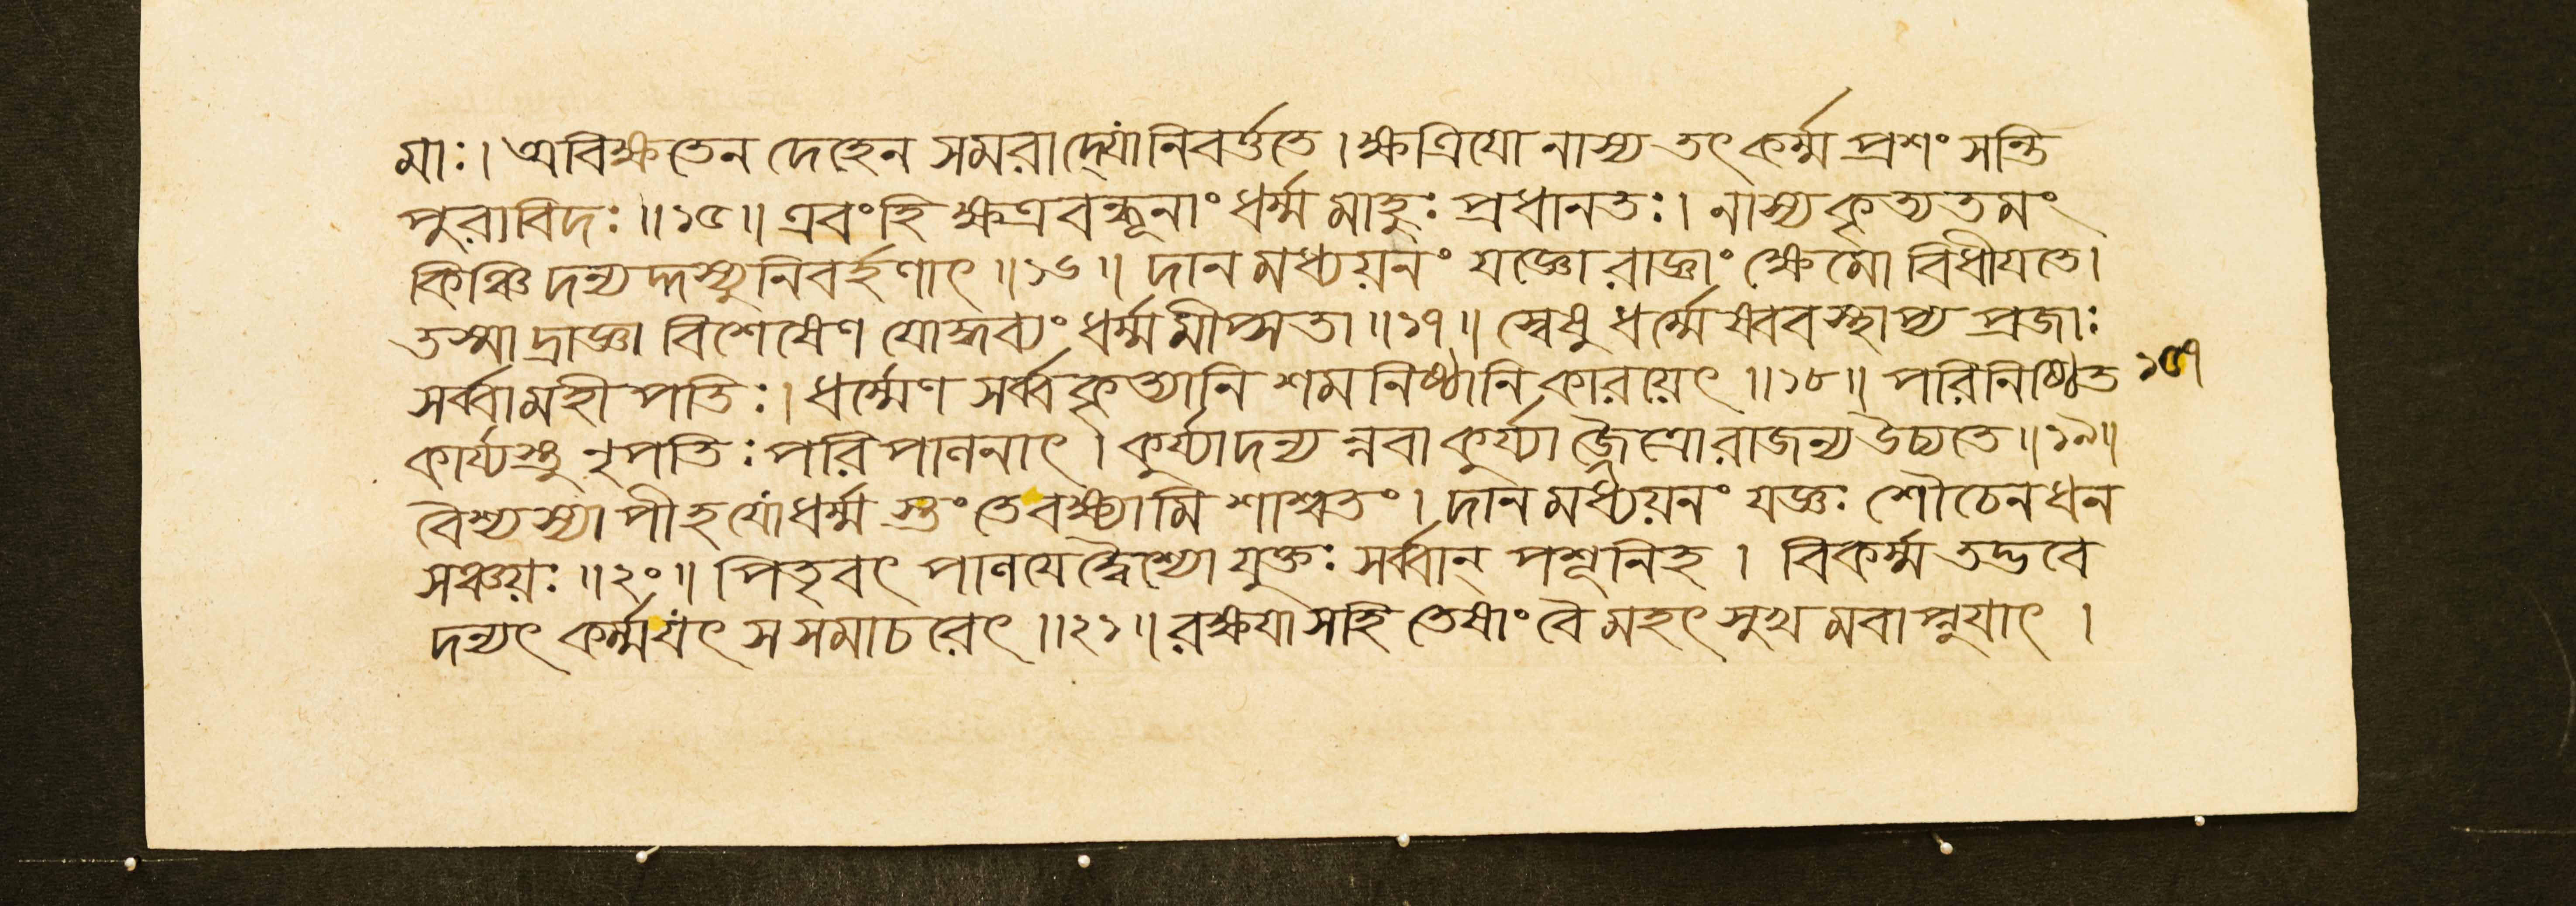 মাঃ। অবিক্ষতেন দেহেন সমরাদ্যো নিবর্ত্ততে। ক্ষত্রিয়ো নাস্য তৎ কর্ম্ম প্রশংসন্তি
পুরাবিদঃ॥১৫॥ এবং হি ক্ষত্রবন্ধূনাং ধর্ম্মমাহুঃ প্রধানতঃ। নাস্য কৃত্যতমং
কিঞ্চিদন্যদ্দস্যুনিবর্হণাৎ॥১৬॥ দানমধ্যয়নং যজ্ঞো রাজ্ঞাং ক্ষেমো বিধীয়তে।
তস্মাদ্রাজ্ঞা বিশেষেণ যোদ্ধব্যং ধর্ম্মমীপ্সতা॥১৭॥ স্বেষু ধর্ম্মেষ্ববস্থাপ্য প্রজাঃ
সর্ব্বা মহীপতিঃ। ধর্ম্মেণ সর্ব্বকৃত্যানি শমনিষ্ঠানি কারয়েৎ॥১৮॥ পরিনিষ্ঠিত ১৫৭
কার্য্যস্তু নৃপতিঃ পরিপালনাৎ। কুর্য্যাদন্যন্নবা কুর্য্যাজ্জৈত্রো রাজন্য উচ্যতে॥১৯॥
বৈশ্যস্যাপীহ যো ধর্ম্মস্তং তে বক্ষ্যামি শাশ্বতং। দানমধ্যয়নং যজ্ঞঃ শৌচেন ধন
সঞ্চয়ঃ॥২০॥ পিতৃবৎ পালয়েদ্বৈশ্যো যুক্তঃ সর্ব্বান্ পশূনিহ। বিকর্ম্ম তদ্ভবে
দন্যৎ কর্ম্ম যৎ স সমাচরেৎ॥২১॥ রক্ষয়া স হি তেষাং বৈ মহৎ সুখমবাপ্নুয়াৎ।